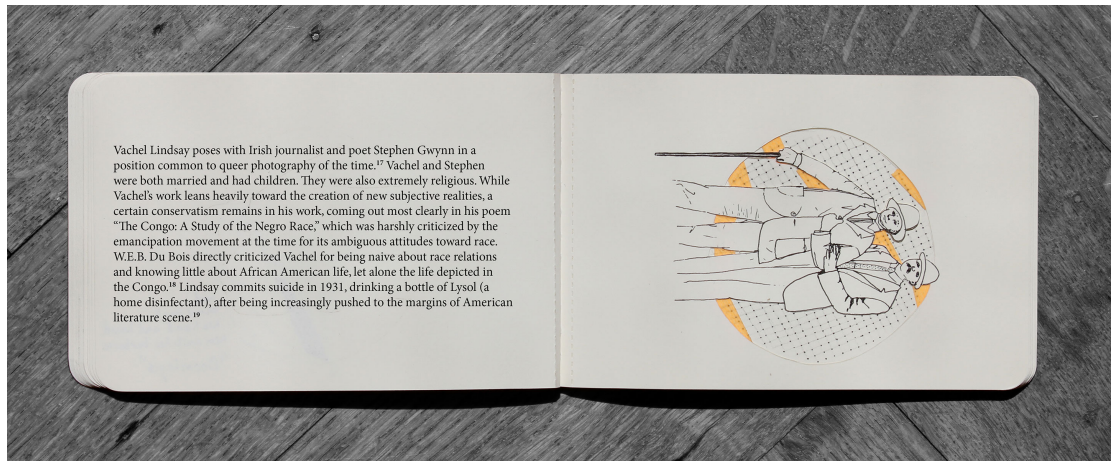 Vachel Lindsay poses with Irish journalist and poet Stephen Gwynn in a
position common to queer photography of the time.¹⁷ Vachel and Stephen
were both married and had children. They were also extremely religious. While
Vachel's work leans heavily toward the creation of new subjective realities, a
certain conservatism remains in his work, coming out most clearly in his poem
“The Congo: A Study of the Negro Race,” which was harshly criticized by the
emancipation movement at the time for its ambiguous attitudes toward race.
W.E.B. Du Bois directly criticized Vachel for being naive about race relations
and knowing little about African American life, let alone the life depicted in
the Congo.¹⁸ Lindsay commits suicide in 1931, drinking a bottle of Lysol (a
home disinfectant), after being increasingly pushed to the margins of American
literature scene.¹⁹